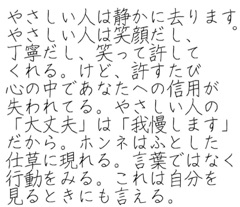 やさしい人は静かに去ります。
やさしい人は笑顔だし、
丁寧だし、笑って許して
くれる。けど、許すたび
心の中であなたへの信用が
失われてる。やさしい人の
「大丈夫」は「我慢します」
だから。ホンネはふとした
仕草に現れる。言葉ではなく
行動をみる。これは自分を
見るときにも言える。